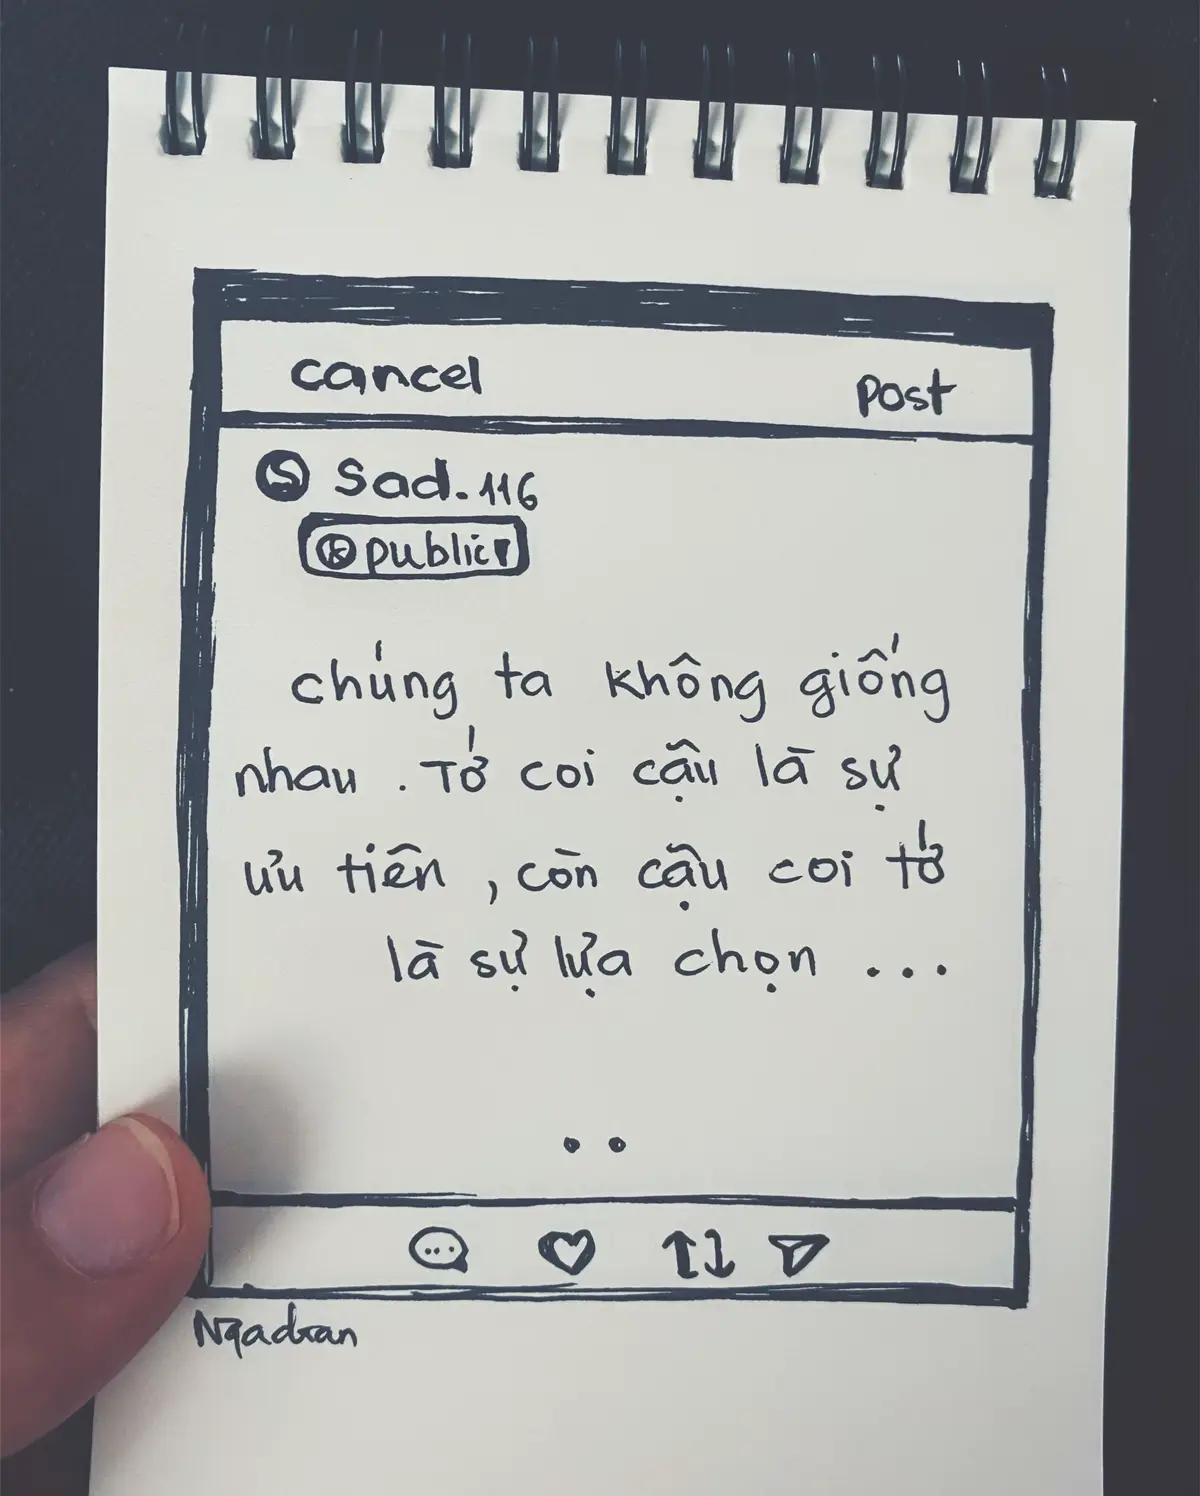 cancel
Post
S Sad.116
k public
chúng ta không giống
nhau. Tớ coi cậu là sự
ưu tiên, còn cậu coi tớ
là sự lựa chọn ...